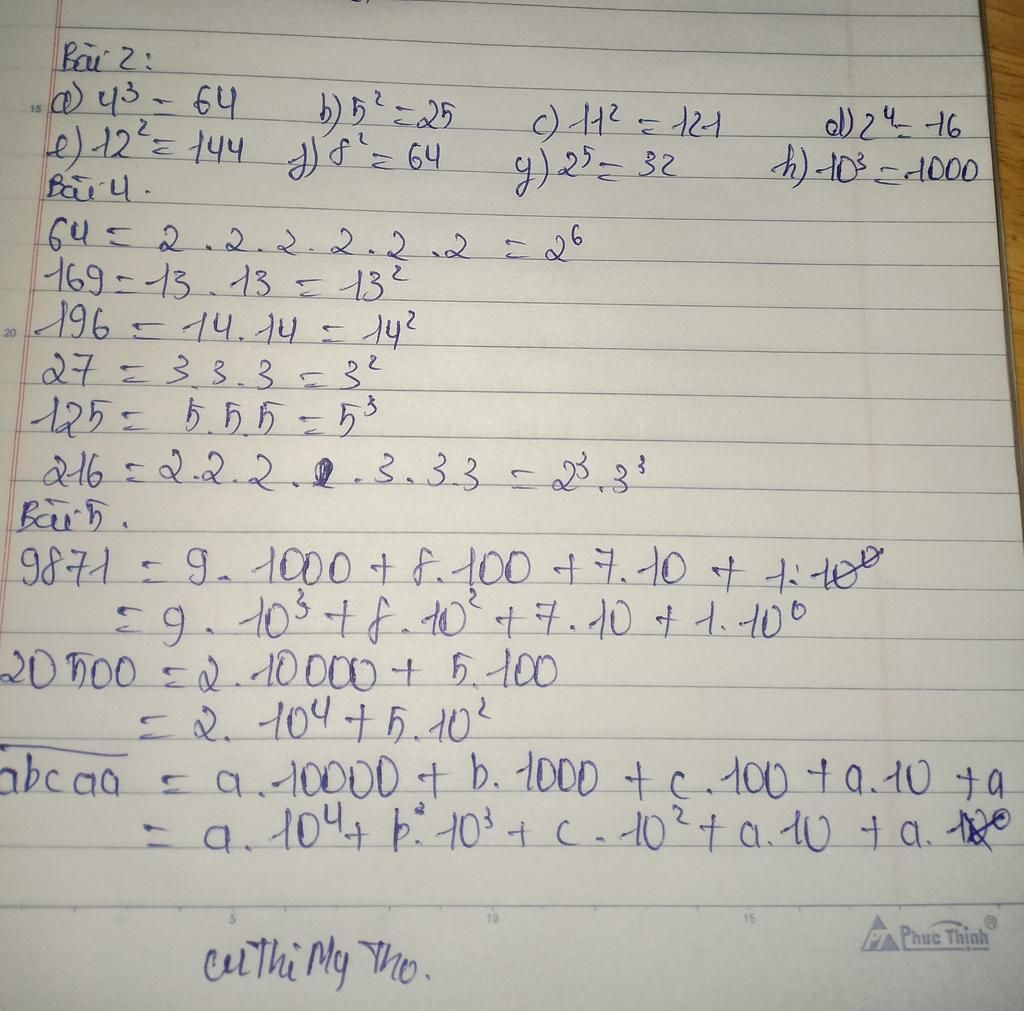 Bài 2:
a) 4³ = 64 b) 5² = 25 c) 11² = 121 d) 2⁴ = 16
e) 12² = 144 f) 8² = 64 g) 2⁵ = 32 h) 10³ = 1000
Bài 4.
64 = 2 . 2 . 2 . 2 . 2 . 2 = 2⁶
169 = 13 . 13 = 13²
196 = 14 . 14 = 14²
27 = 3 . 3 . 3 = 3²
125 = 5 . 5 . 5 = 5³
216 = 2 . 2 . 2 . . 3 . 3 . 3 = 2³ . 3³
Bài 5.
9871 = 9 . 1000 + 8 . 100 + 7 . 10 + 1
= 9 . 10³ + 8 . 10² + 7 . 10 + 1 . 10⁰
20500 = 2 . 10000 + 5 . 100
= 2 . 10⁴ + 5 . 10²
abcaa = a . 10000 + b . 1000 + c . 100 + a . 10 + a
= a . 10⁴ + b . 10³ + c . 10² + a . 10 + a .
5 10 15
15
20
Phuc Thinh®
Cu Thi My Tho.